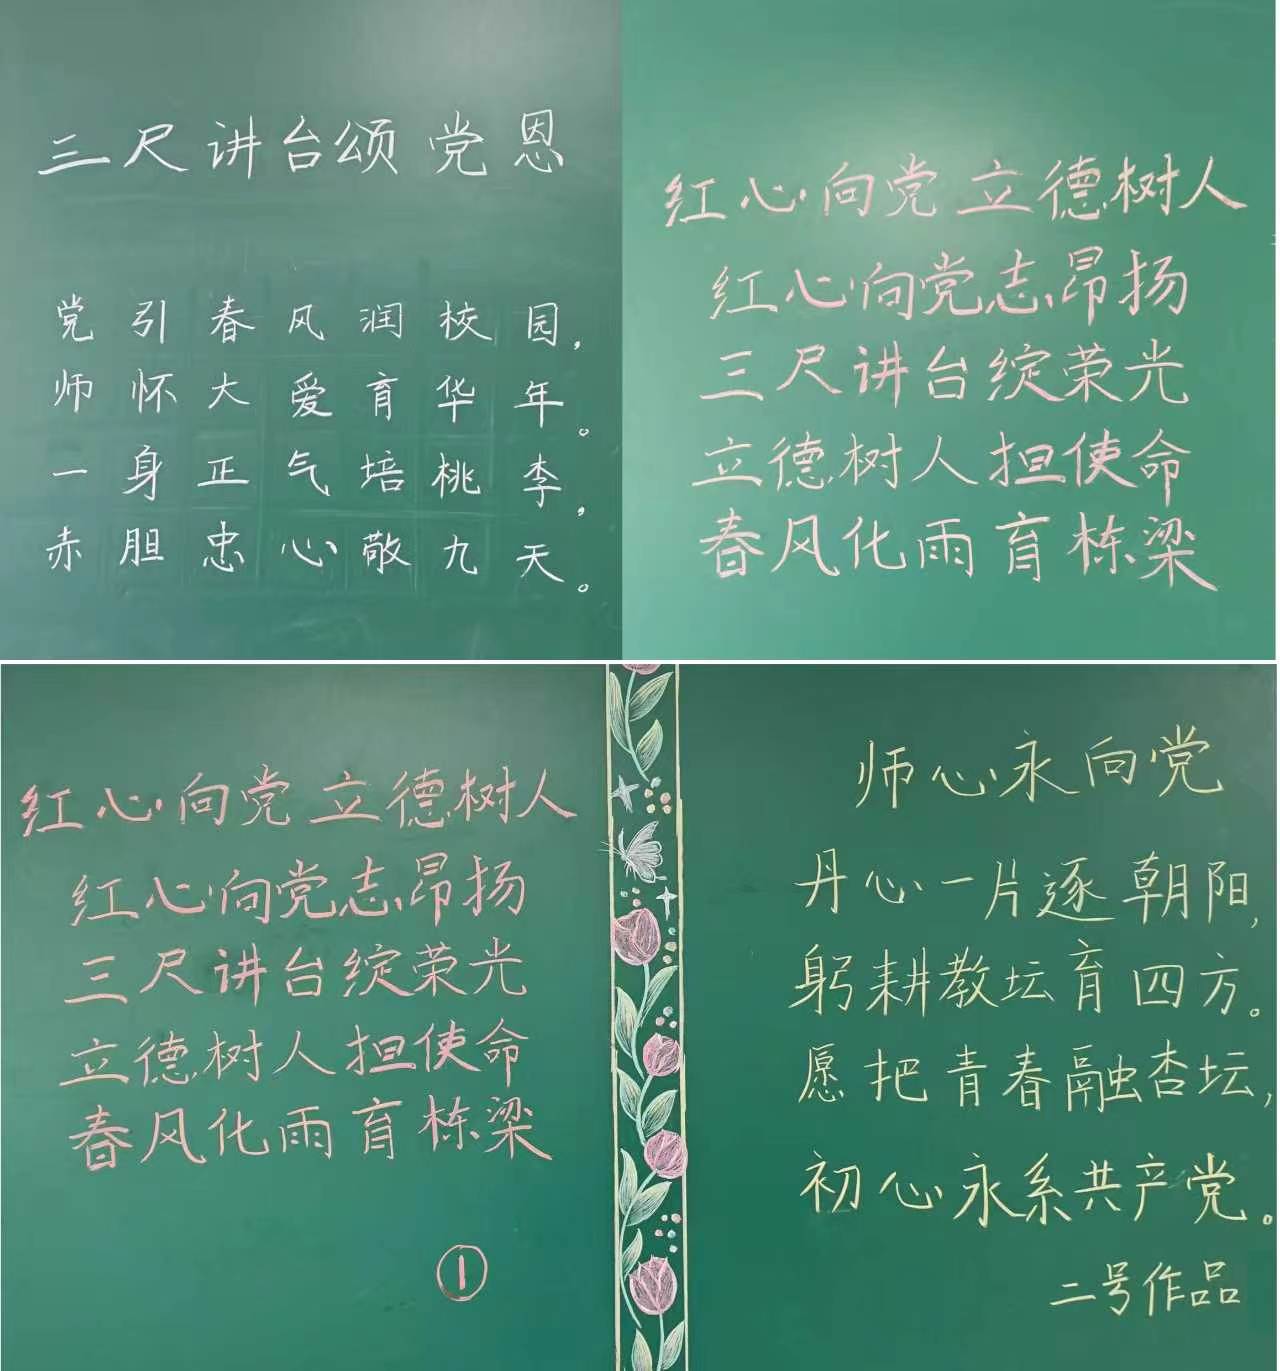 三尺讲台颂党恩
党引春风润校园，
师怀大爱育华年。
一身正气培桃李，
赤胆忠心敬九天。
红心向党 立德树人
红心向党志昂扬
三尺讲台绽荣光
立德树人担使命
春风化雨育栋梁
红心向党 立德树人
红心向党志昂扬
三尺讲台绽荣光
立德树人担使命
春风化雨育栋梁
①
师心永向党
丹心一片逐朝阳，
躬耕教坛育四方。
愿把青春融杏坛，
初心永系共产党。
二号作品